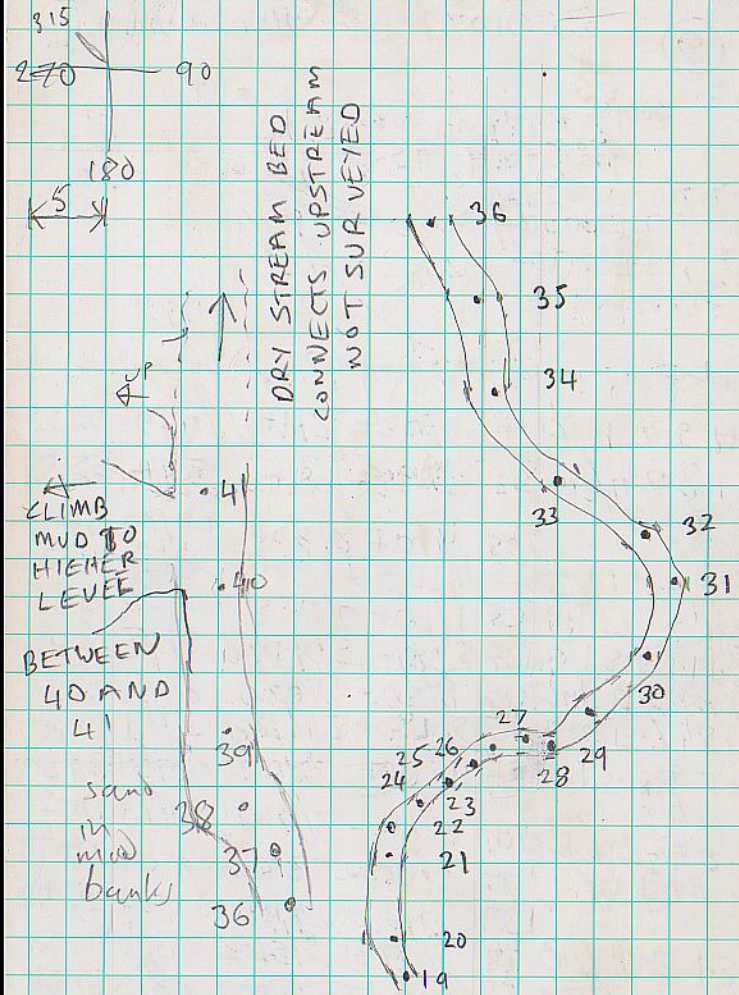 315
270
90
180
5
DRY STREAM BED
CONNECTS UPSTREAM
NOT SURVEYED
UP
CLIMB
MUD TO
HIGHER
LEVEL
BETWEEN
40 AND
41
sand
in
mud
banks
41
40
39
38
37
36
36
35
34
33
32
31
30
29
28
27
26
25
24
23
22
21
20
19